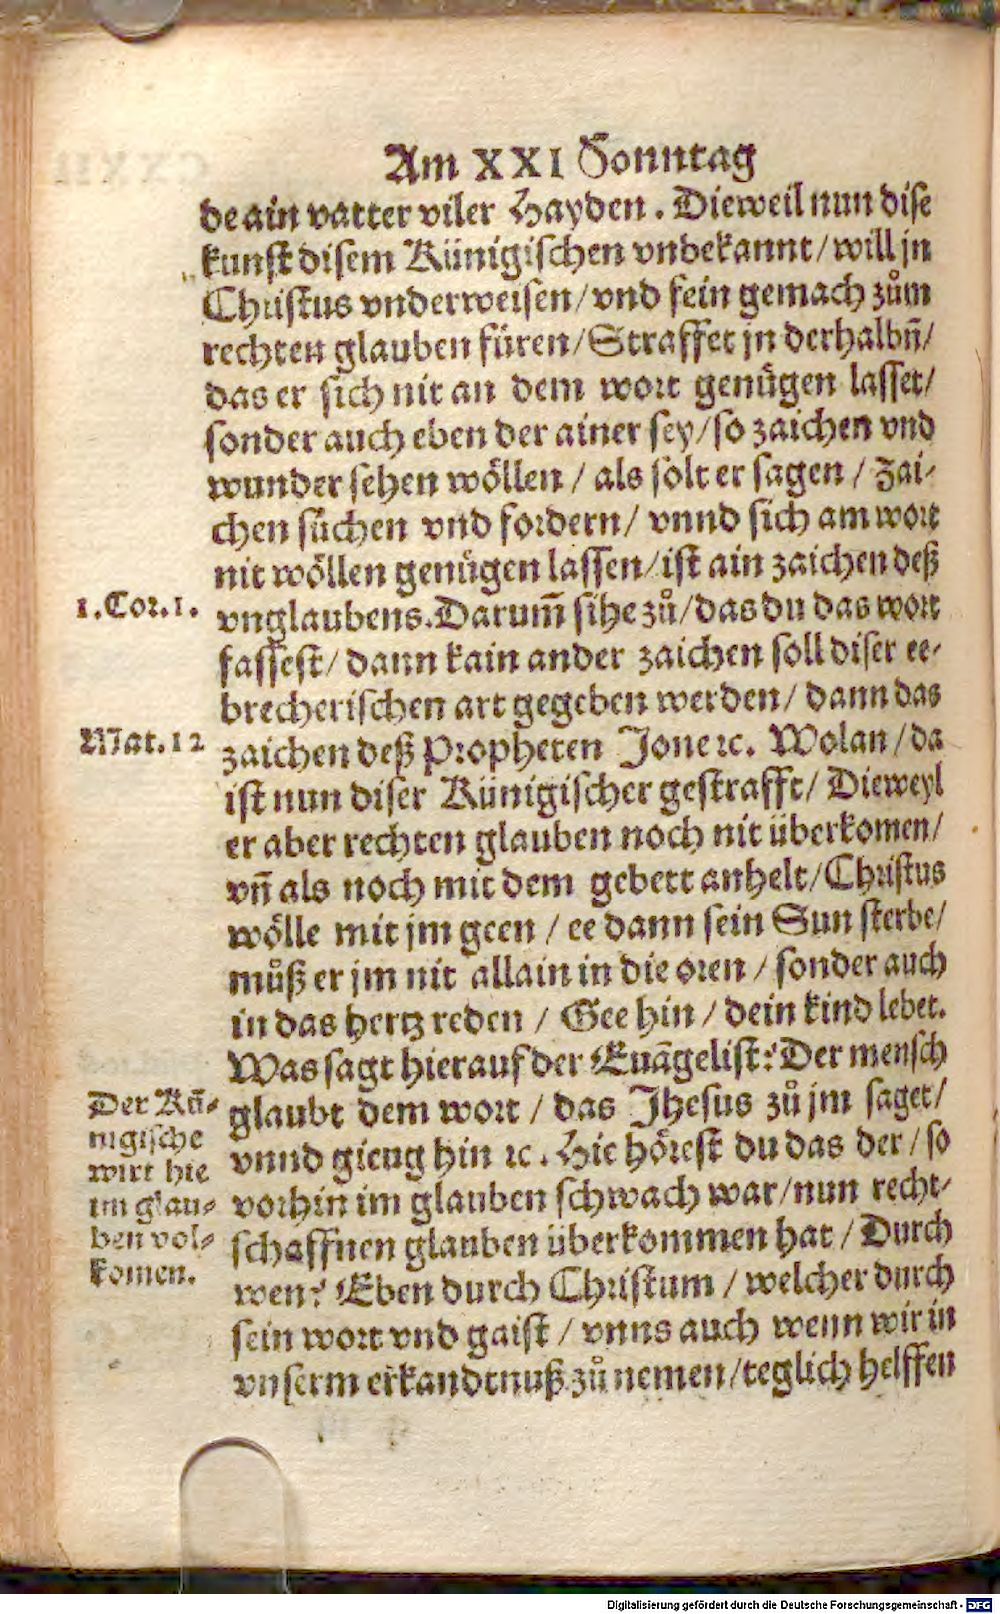 Am XXI Sonntag
de ain vatter viler Hayden. Dieweil nun dise
kunst disem Künigischen vnbekannt/ will jn
Christus vnderweisen/ vnd fein gemach zům
rechten glauben füren/ Straffet jn derhalbñ/
das er sich nit an dem wort genügen lasset/
sonder auch eben der ainer sey/ so zaichen vnd
wunder sehen wöllen / als solt er sagen / Zai-
chen sůchen vnd fordern/ vnnd sich am wort
nit wöllen genügen lassen/ ist ain zaichen deß
1.Cor.1.
vnglaubens. Darum̃ sihe zů/ das du das wort
fassest/ dann kain ander zaichen soll diser ee-
brecherischen art gegeben werden/ dann das
Mat.12
zaichen deß Propheten Jone ꝛc. Wolan / da
ist nun diser Künigischer gestrafft/ Dieweyl
er aber rechten glauben noch nit überkomen/
vñ als noch mit dem gebett anhelt/ Christus
wölle mit jm geen / ee dann sein Sun sterbe/
můß er jm nit allain in die oren / sonder auch
in das hertz reden / Gee hin / dein kind lebet.
Was sagt hierauf der Euãgelist? Der mensch
glaubt dem wort / das Jhesus zů jm saget/
vnnd gieng hin ꝛc. Hie hörest du das der / so
vorhin im glauben schwach war/ nun recht-
schaffnen glauben überkommen hat / Durch
wen? Eben durch Christum / welcher durch
sein wort vnd gaist / vnns auch wenn wir in
vnserm erkandtnuß zů nemen/ teglich helffen
Der Kü-
nigische
wirt hie
im glau-
ben vol-
komen.
Digitalisierung gefördert durch die Deutsche Forschungsgemeinschaft - DFG